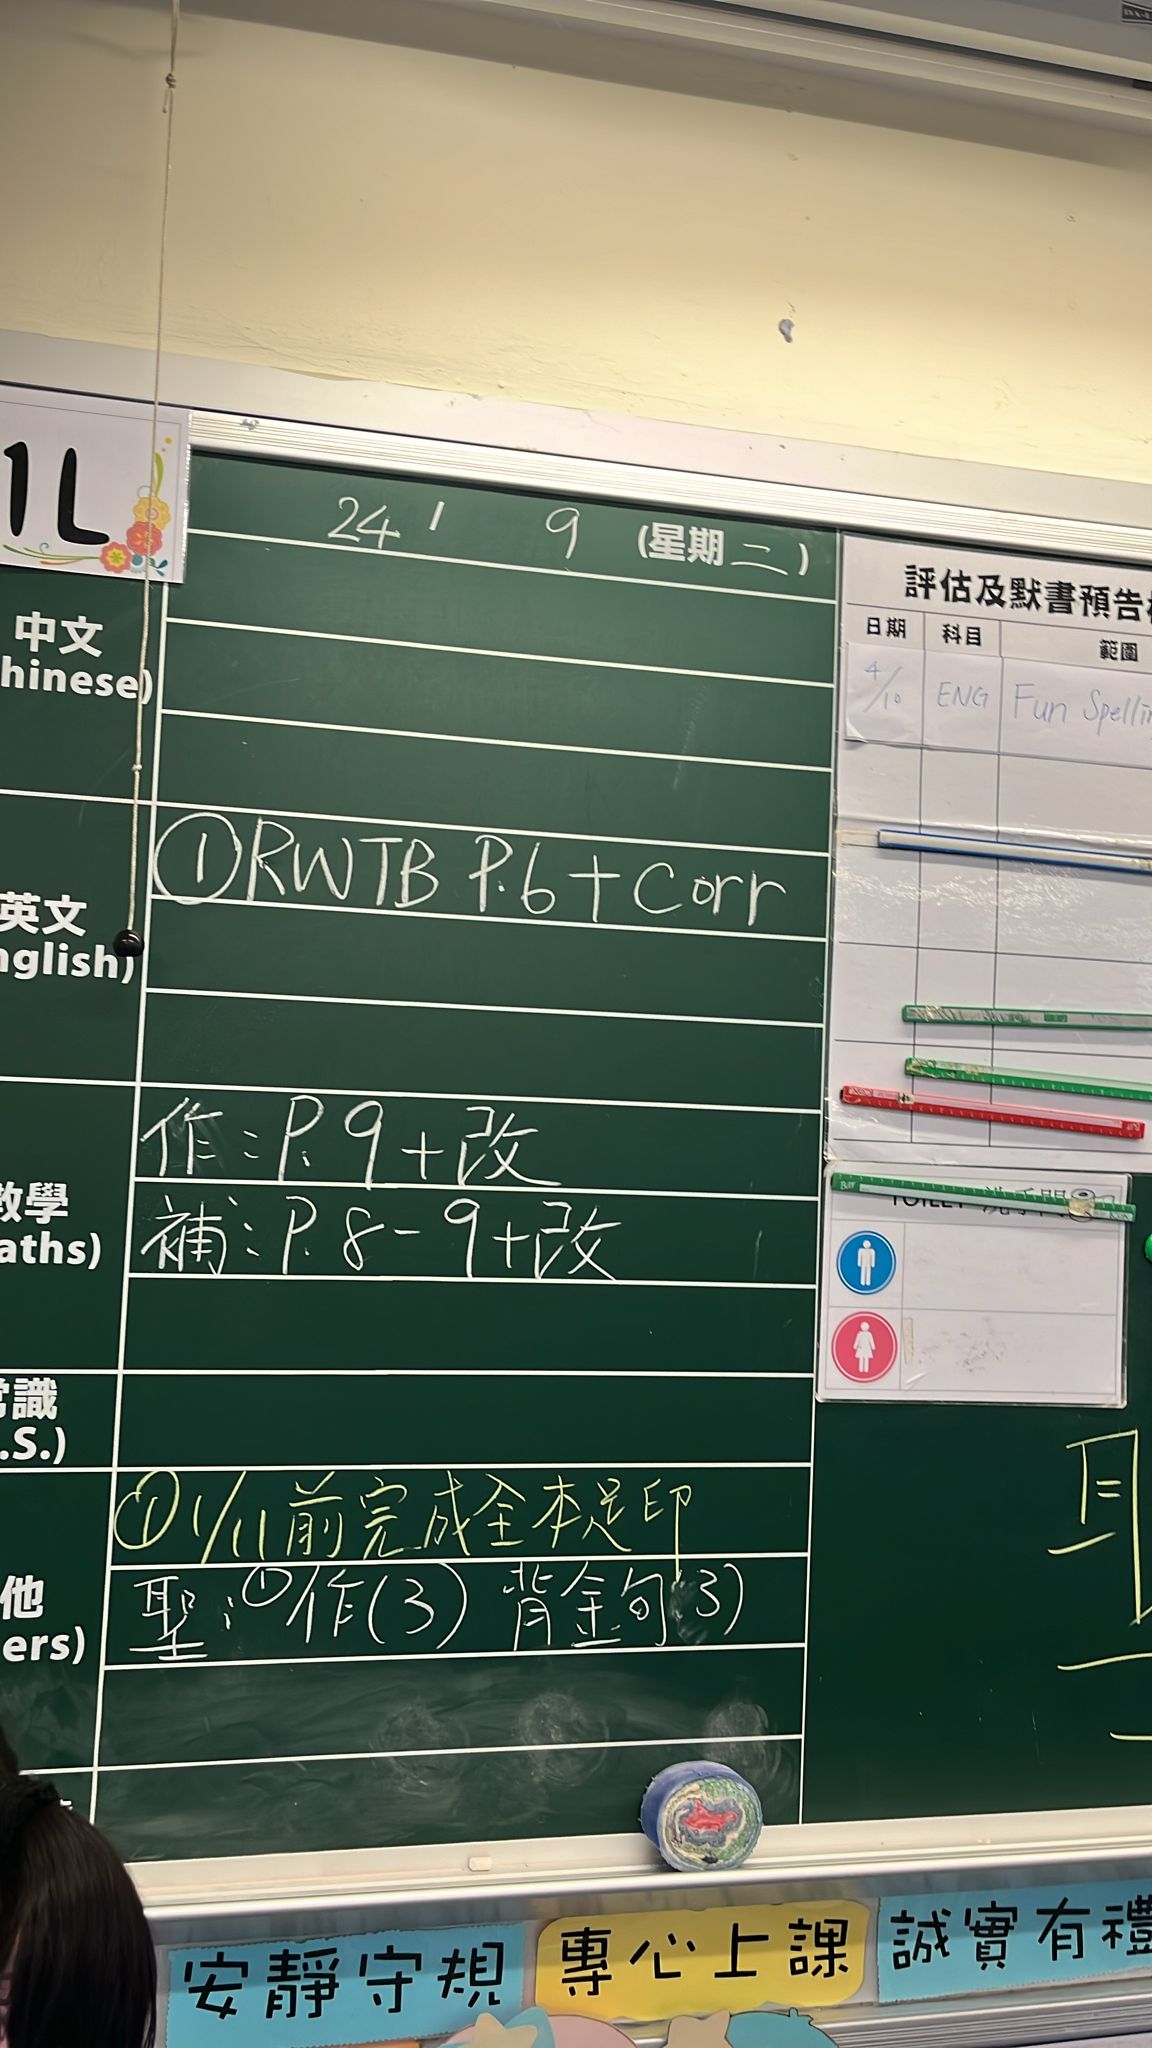 1L
24 / 9 (星期二)
中文
hinese)
英文
nglish)
①RWTB P.6 + Corr
數學
aths)
作：P.9+改
補：P.8-9+改
常識
.S.)
他
ers)
① 1/11前完成全本足印
聖：①作(3) 背金句(3)
評估及默書預告
日期 科目 範圍
4/10 ENG Fun Spellin
TOILET 洗手間
安靜守規
專心上課
誠實有禮